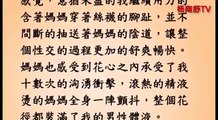 楊南舒TV
感覺，意猶未盡的我繼續用力的
含著媽媽穿著絲襪的腳趾，並不
間斷的抽送著媽媽的陰道，讓整
個性交的過程更加的舒爽暢快。
媽媽也感受到花心之內承受了我
十數次的洶湧衝擊，滾熱的精液
燙的媽媽全身一陣顫抖，整個花
徑都裝滿了我的男性體液。